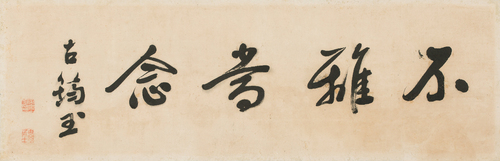 不離當念
古筠玉